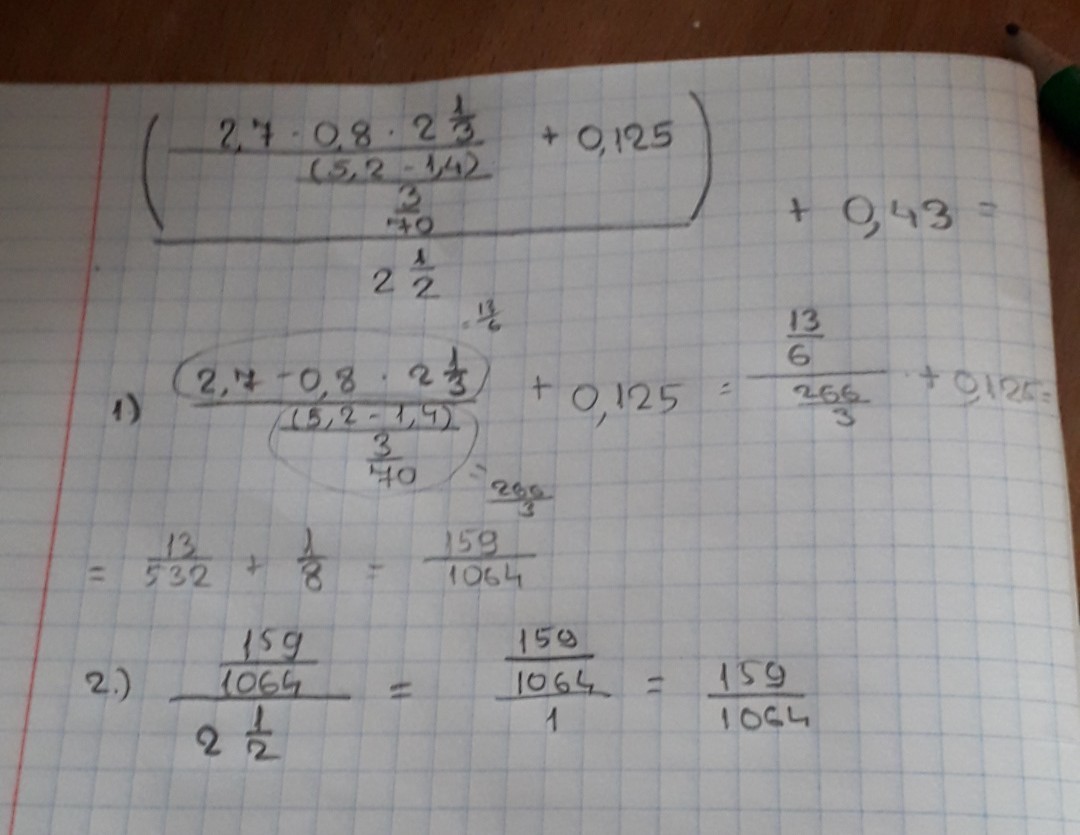 ( 2,7 · 0,8 · 2 1/3 / ( (5,2 - 1,4) / 3/70 ) + 0,125 ) / 2 1/2 + 0,43 =
= 13/6
1) 2,7 - 0,8 · 2 1/3 / ( (5,2 - 1,4) / 3/70 ) + 0,125 = 13/6 / 266/3 + 0,125 =
= 266/3
= 13/532 + 1/8 = 159/1064
2.) 159/1064 / 2 1/2 = 159/1064 / 1 = 159/1064